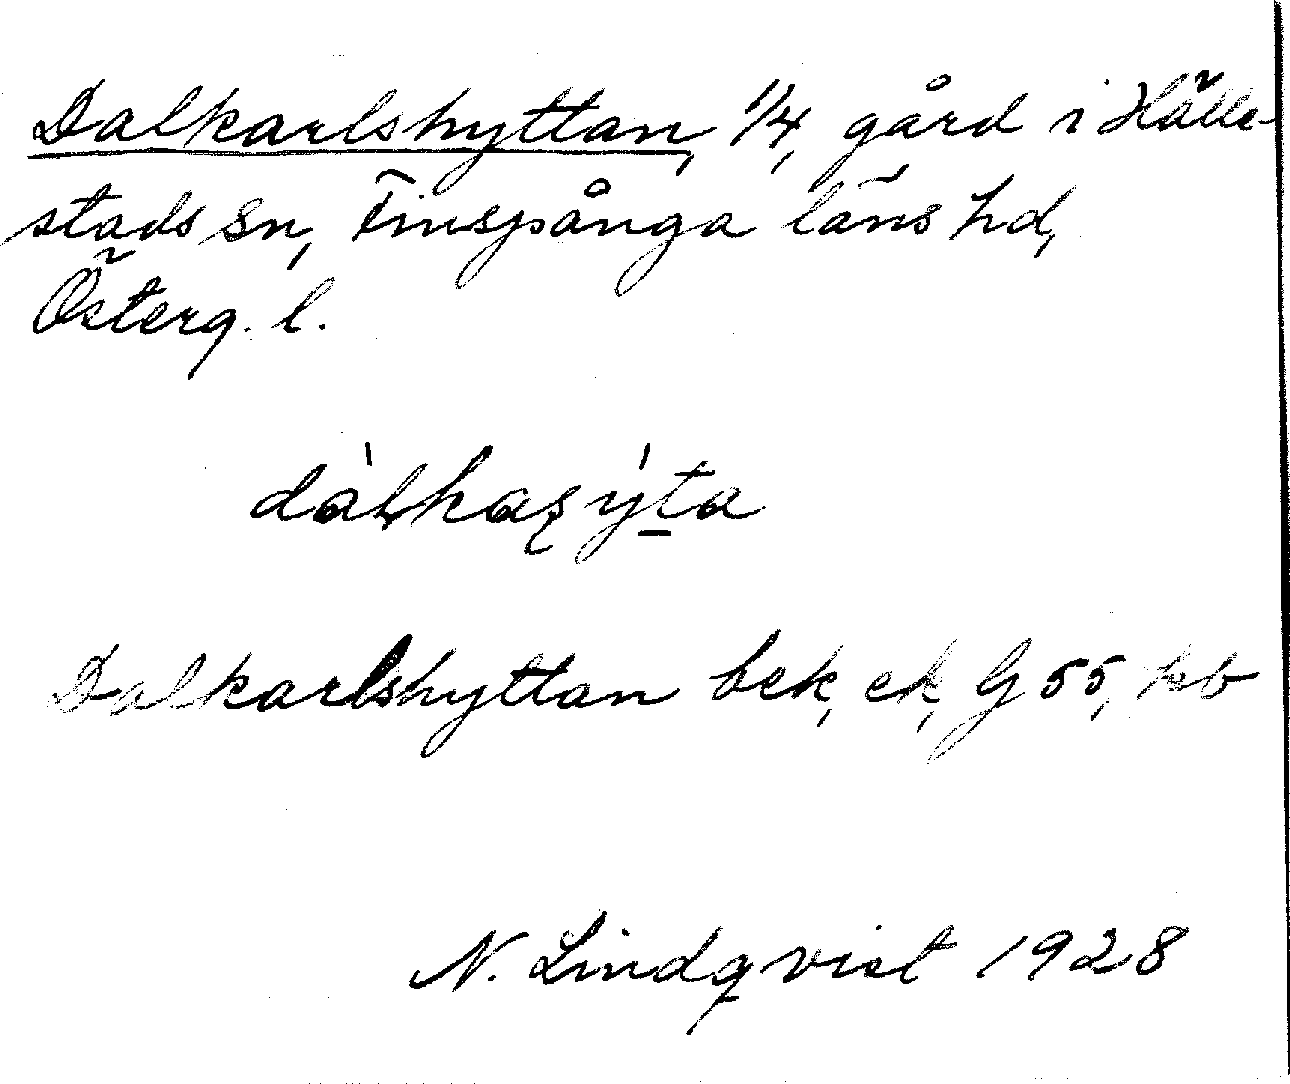 Dalkarlshyttan, 1/4, gård i Hälle-
stads sn, Finspånga läns hd,
Österg. l.
dàlkaʂy̍ta
Dalkarlshyttan bek, ek, G 55, hb
N. Lindqvist 1928